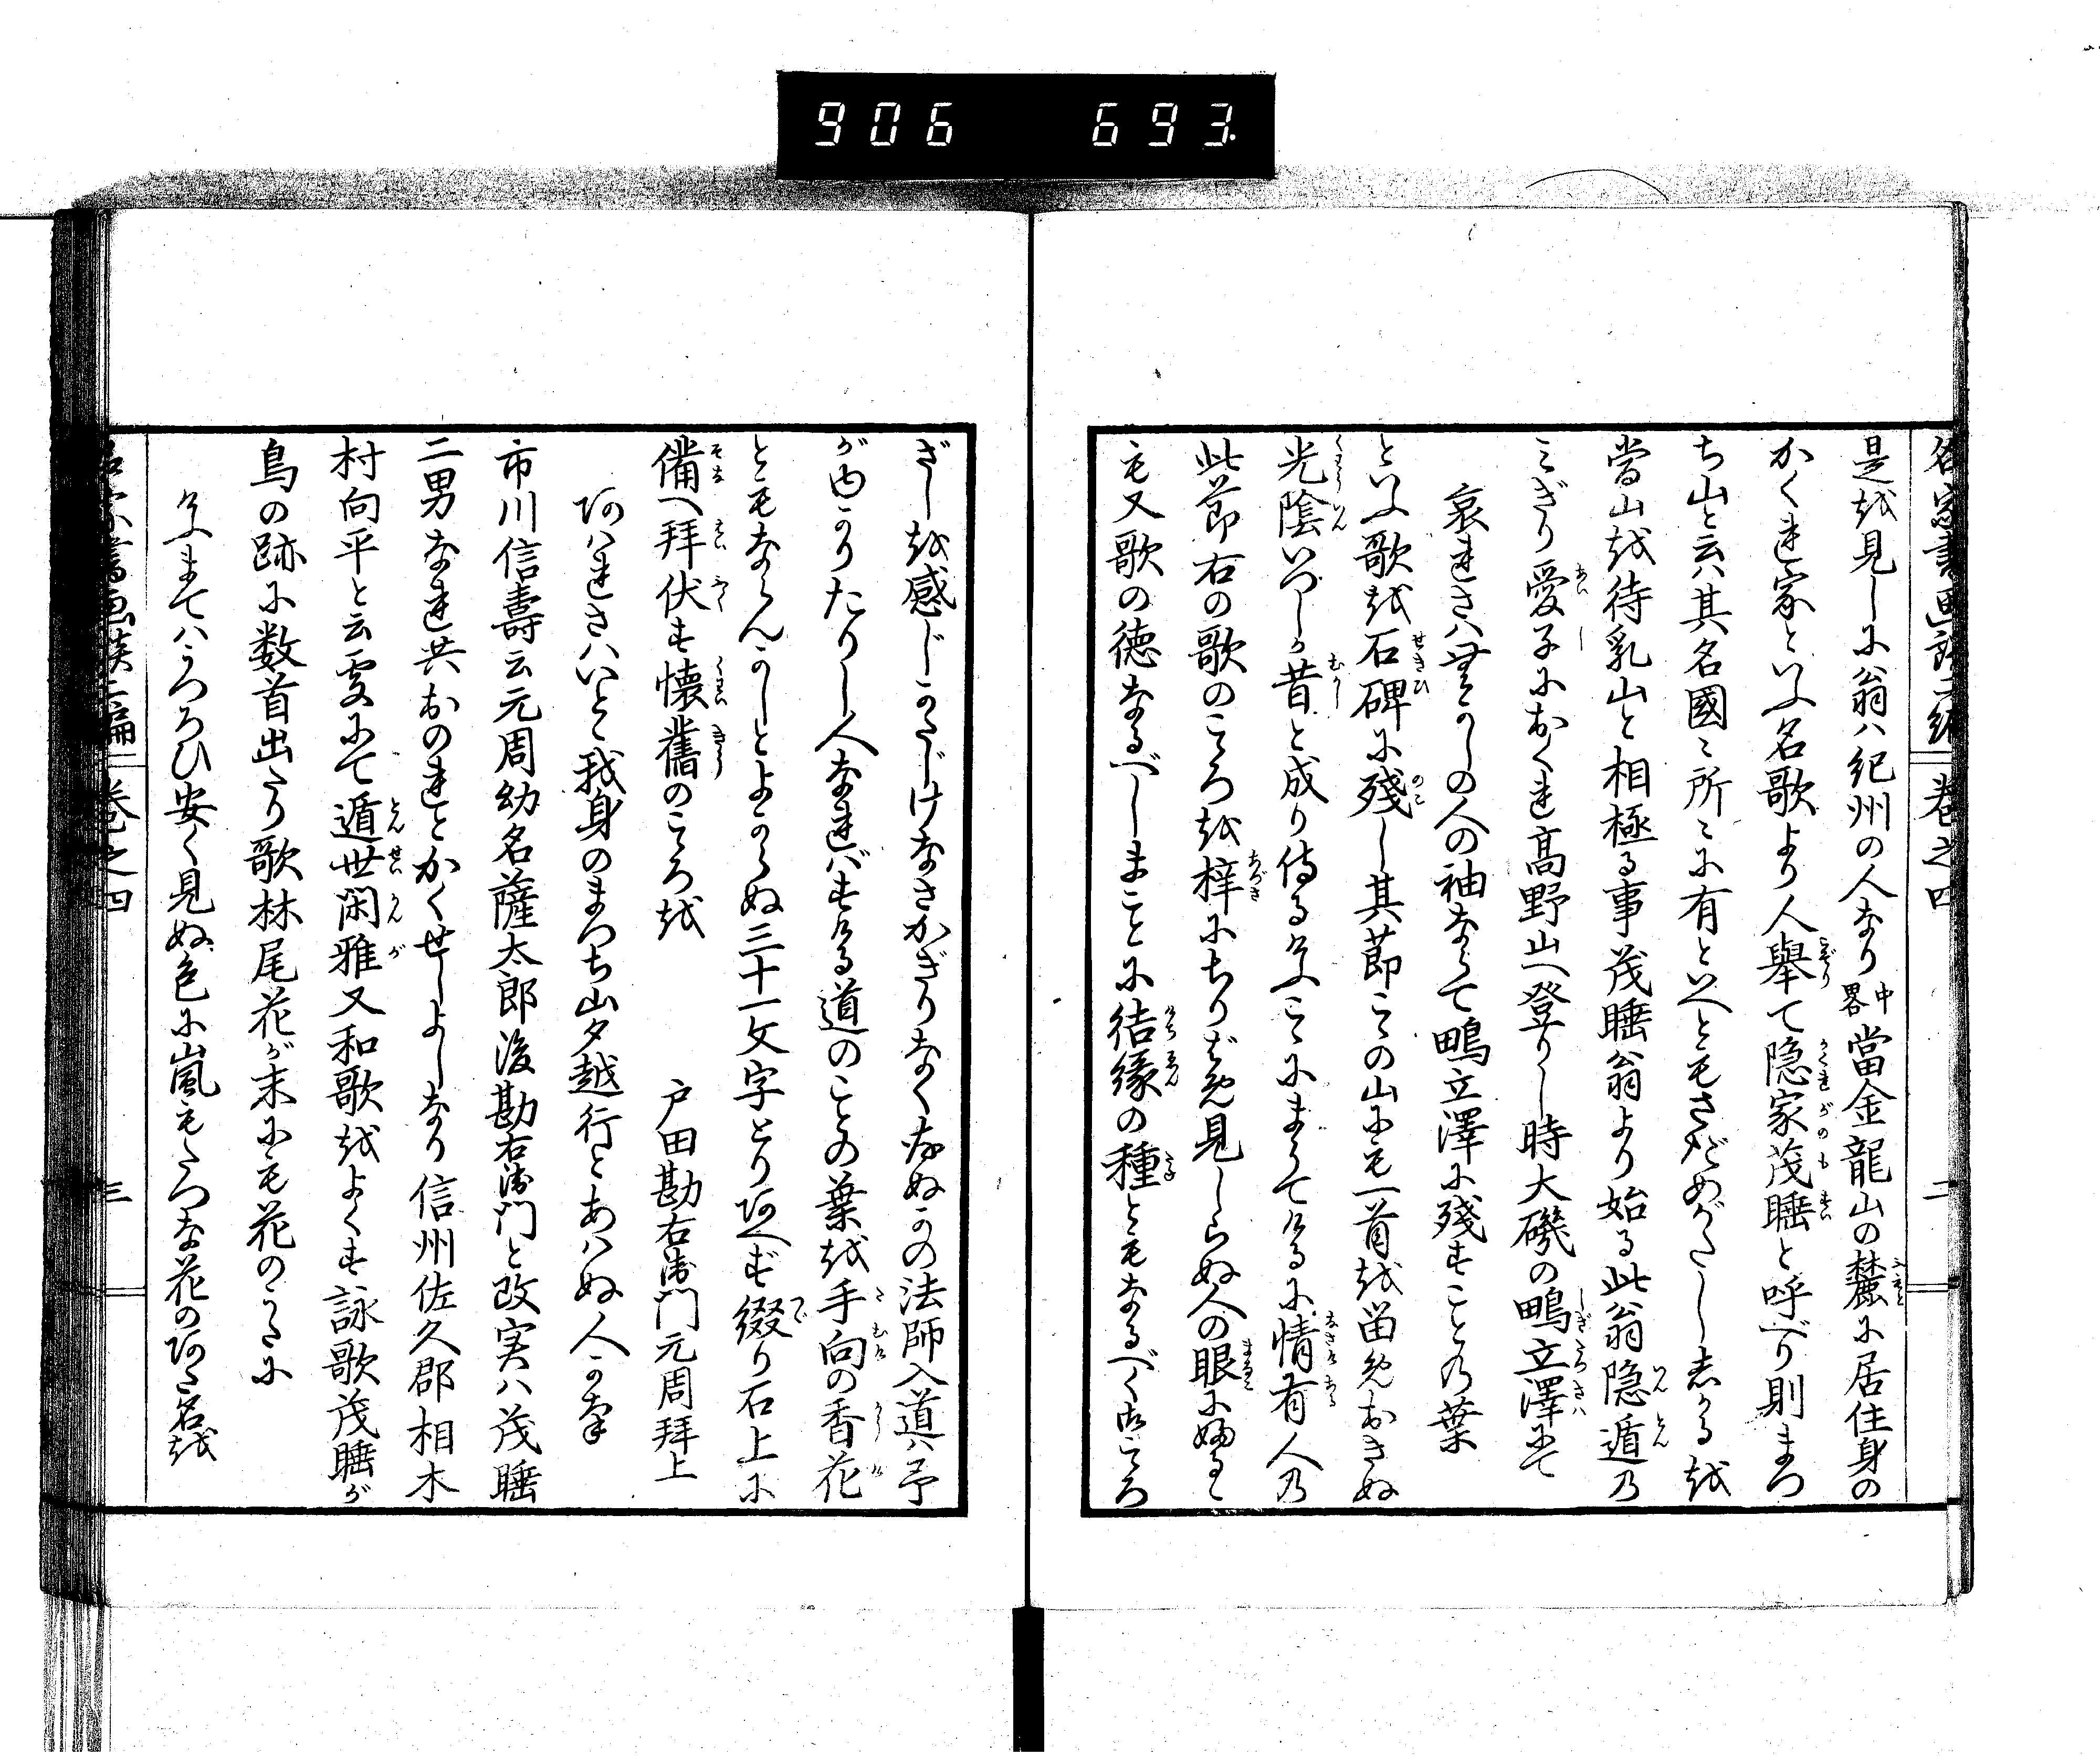 906 693.
名家書画談二編 巻之四 二
是越見しに翁ハ紀州の人なり中畧當金龍山の麓に居住身の
かくれ家といふ名歌より人舉て隠家茂睡と呼べり則まつ
ち山と云ハ其名國々所々に有といへともさだめがたししかる越
當山越待乳山と相極る事茂睡翁より始る此翁隠遁乃
みぎり愛子におくれ髙野山へ登りし時大磯の鴫立澤にて
哀れさハ世になしの人の袖ならて鴫立澤に残すことの葉
といふ歌越石碑に殘し其節この山にも一首越留めおきぬ
光陰いつしか昔と成り侍る今ここにまうてけるに情有人乃
此節右の歌のこころ越梓にちりばめ見しらぬ人の眼にふると
も又歌の徳なるべしまことに結縁の種ともなるべく御こころ
ざし越感じかたじけなさかぎりなく存ぬかの法師入道ハ予
が由かりたりし人なればすける道のことの葉越手向の香花
ともならんかしとよからぬ三十一文字とりあへず綴り石上に
備へ拜伏す懐舊のこころ越 戸田勘右衛門元周拜上
あハれさハいとと我身のまつち山夕越行とあハぬ人かな
市川信壽云元周幼名薩太郎後勘右衛門と改実ハ茂睡
二男なれ共おのれとかくせしよしなり信州佐久郡相木
村向平と云處にて遁世閑雅又和歌越よくす詠歌茂睡が
鳥の跡に数首出たり歌林尾花が末にも花のうたに
けふまてハうつろひ安く見ぬ色に嵐もたつな花のあた名越
名家書画談二編 巻之四 三